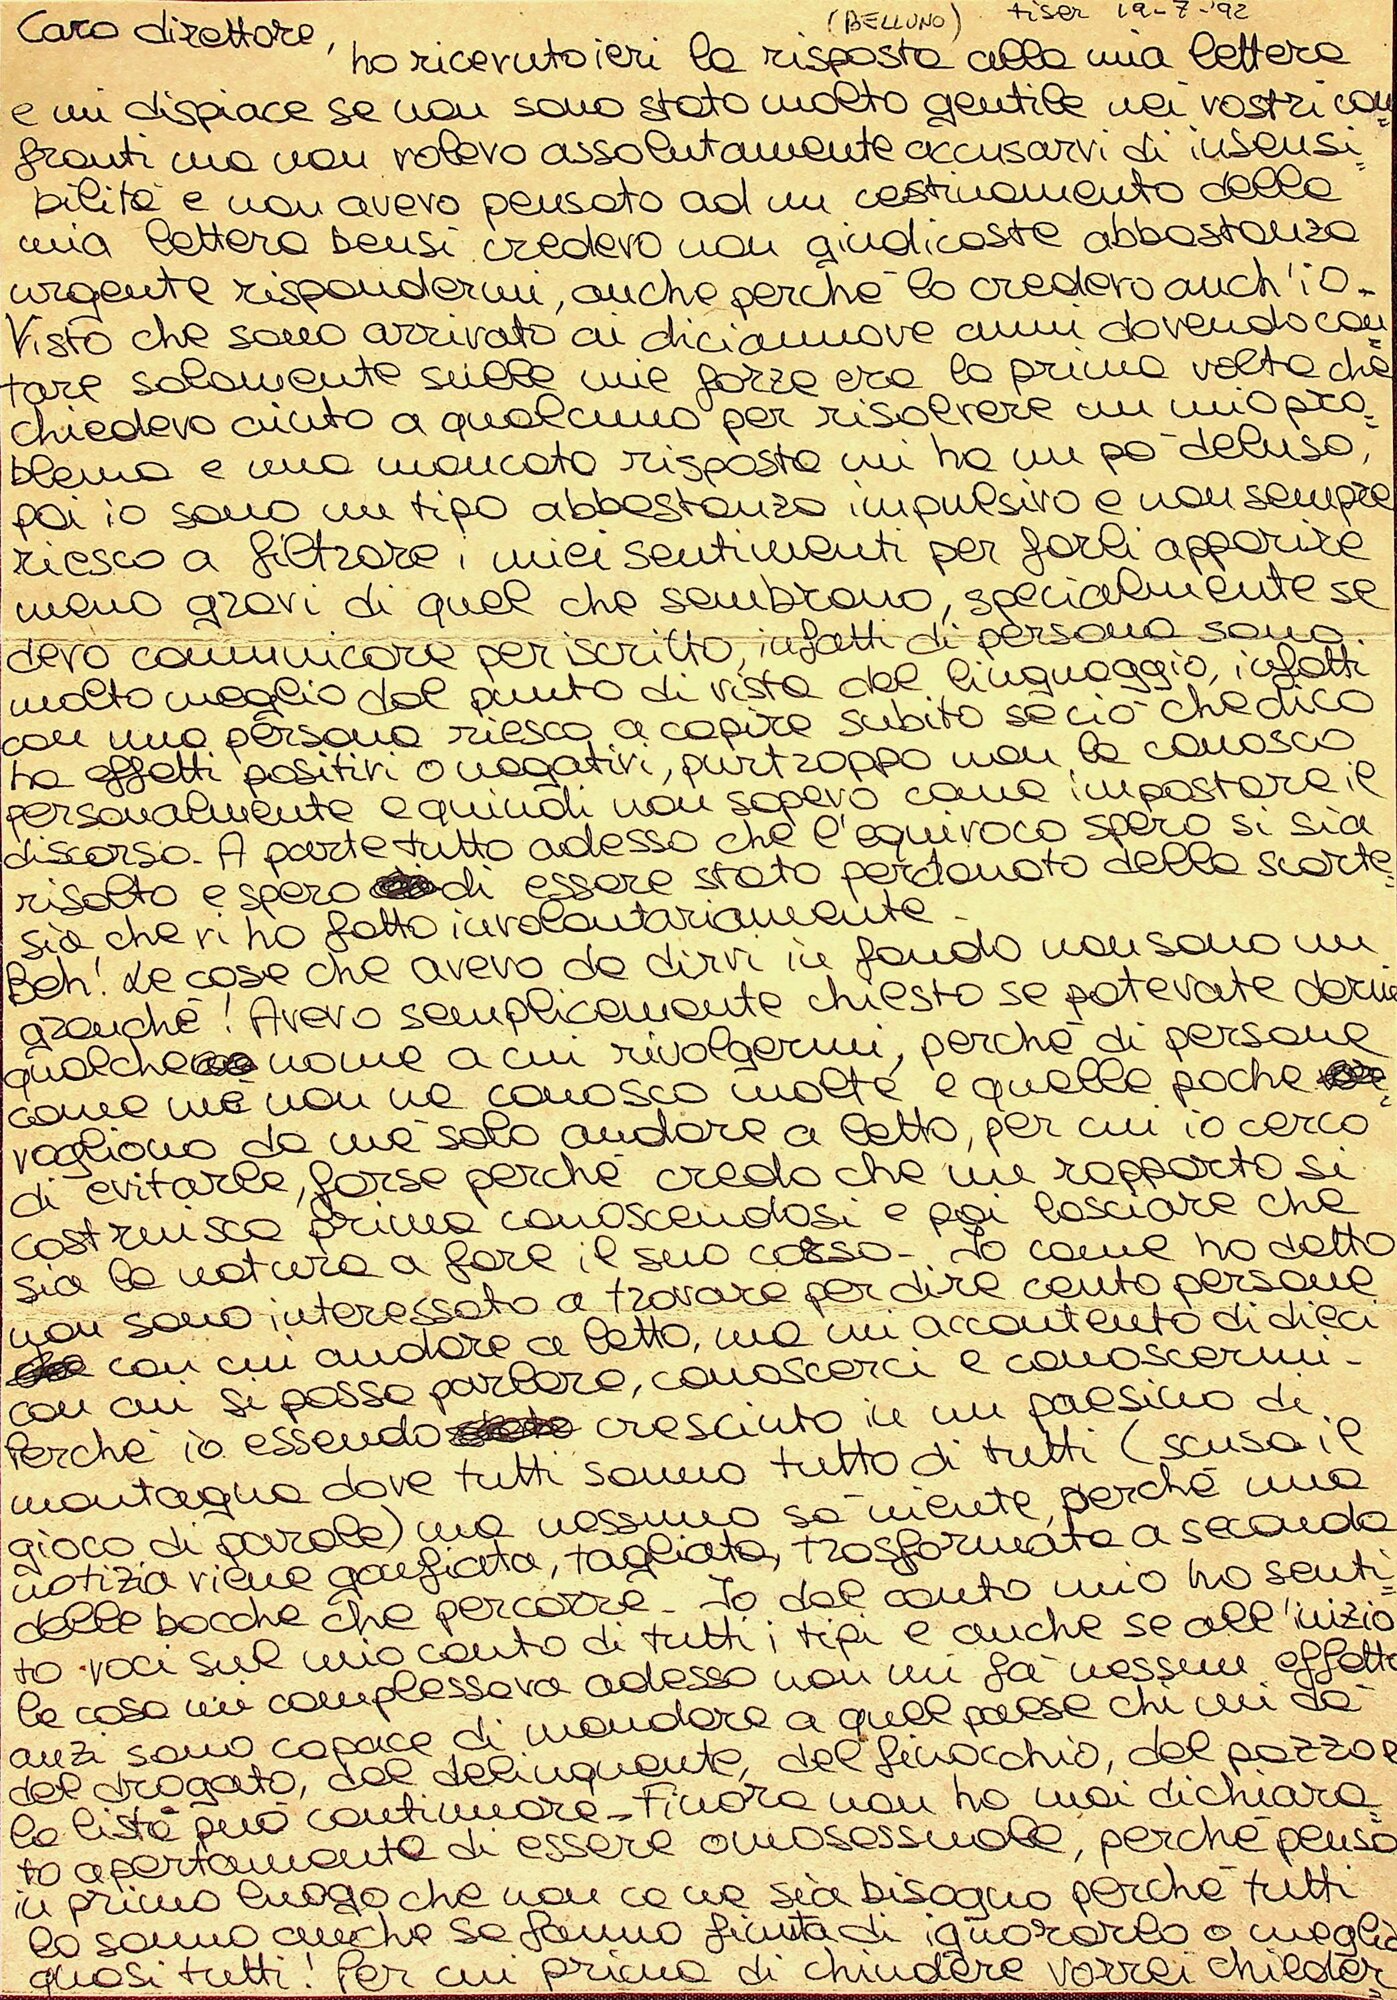 (BELLUNO) tiser 19-7-'92
Caro direttore,
ho ricevuto ieri la risposta alla mia lettera
e mi dispiace se non sono stato molto gentile nei vostri con=
fronti ma non volevo assolutamente accusarvi di insensi=
bilità e non avevo pensato ad un cestinamento della
mia lettera bensì credevo non giudicaste abbastanza
urgente rispondermi, anche perchè lo credevo anch'io-
Visto che sono arrivato ai diciannove anni dovendo con=
tare solamente sulle mie forze era la prima volta che
chiedevo aiuto a qualcuno per risolvere un mio pro=
blema e una mancata risposta mi ha un pò deluso,
poi io sono un tipo abbastanza impulsivo e non sempre
riesco a filtrare i miei sentimenti per farli apparire
meno gravi di quel che sembrano, specialmente se
devo comunicare per iscritto, infatti di persona sono
molto meglio dal punto di vista del linguaggio, infatti
con una persona riesco a capire subito se ciò che dico
ha effetti positivi o negativi, purtroppo non la conosco
personalmente e quindi non sapevo come impostare il
discorso. A parte tutto adesso che l'equivoco spero si sia
risolto e spero di essere stato perdonato della scorte=
sia che vi ho fatto involontariamente-
Beh! Le cose che avevo da dirvi in fondo non sono un
granchè! Avevo semplicemente chiesto se potevate darmi
qualche nome a cui rivolgermi, perchè di persone
come me non ne conosco molte e quelle poche
vogliono da me solo andare a letto, per cui io cerco
di evitarle, forse perchè credo che un rapporto si
costruisca prima conoscendosi e poi lasciare che
sia la natura a fare il suo corso- Io come ho detto
non sono interessato a trovare per dire cento persone
con cui andare a letto, ma mi accontento di dieci
con cui si possa parlare, conoscerci e conoscermi-
Perchè io essendo cresciuto in un paesino di
montagna dove tutti sanno tutto di tutti (scusa il
gioco di parole) ma nessuno sà niente, perchè una
notizia viene gonfiata, tagliata, trasformata a seconda
delle bocche che percorre- Io dal canto mio ho senti=
to voci sul mio conto di tutti i tipi e anche se all'inizio
la cosa mi complessava adesso non mi fà nessun effetto
anzi sono capace di mandare a quel paese chi mi dà
del drogato, del delinquente, del finocchio, del pazzo e
la lista può continuare- Finora non ho mai dichiara=
to apertamente di essere omosessuale, perchè penso
in primo luogo che non ce ne sia bisogno perchè tutti
lo sanno anche se fanno finta di ignorarlo o meglio
quasi tutti! Per cui prima di chiudere vorrei chieder=